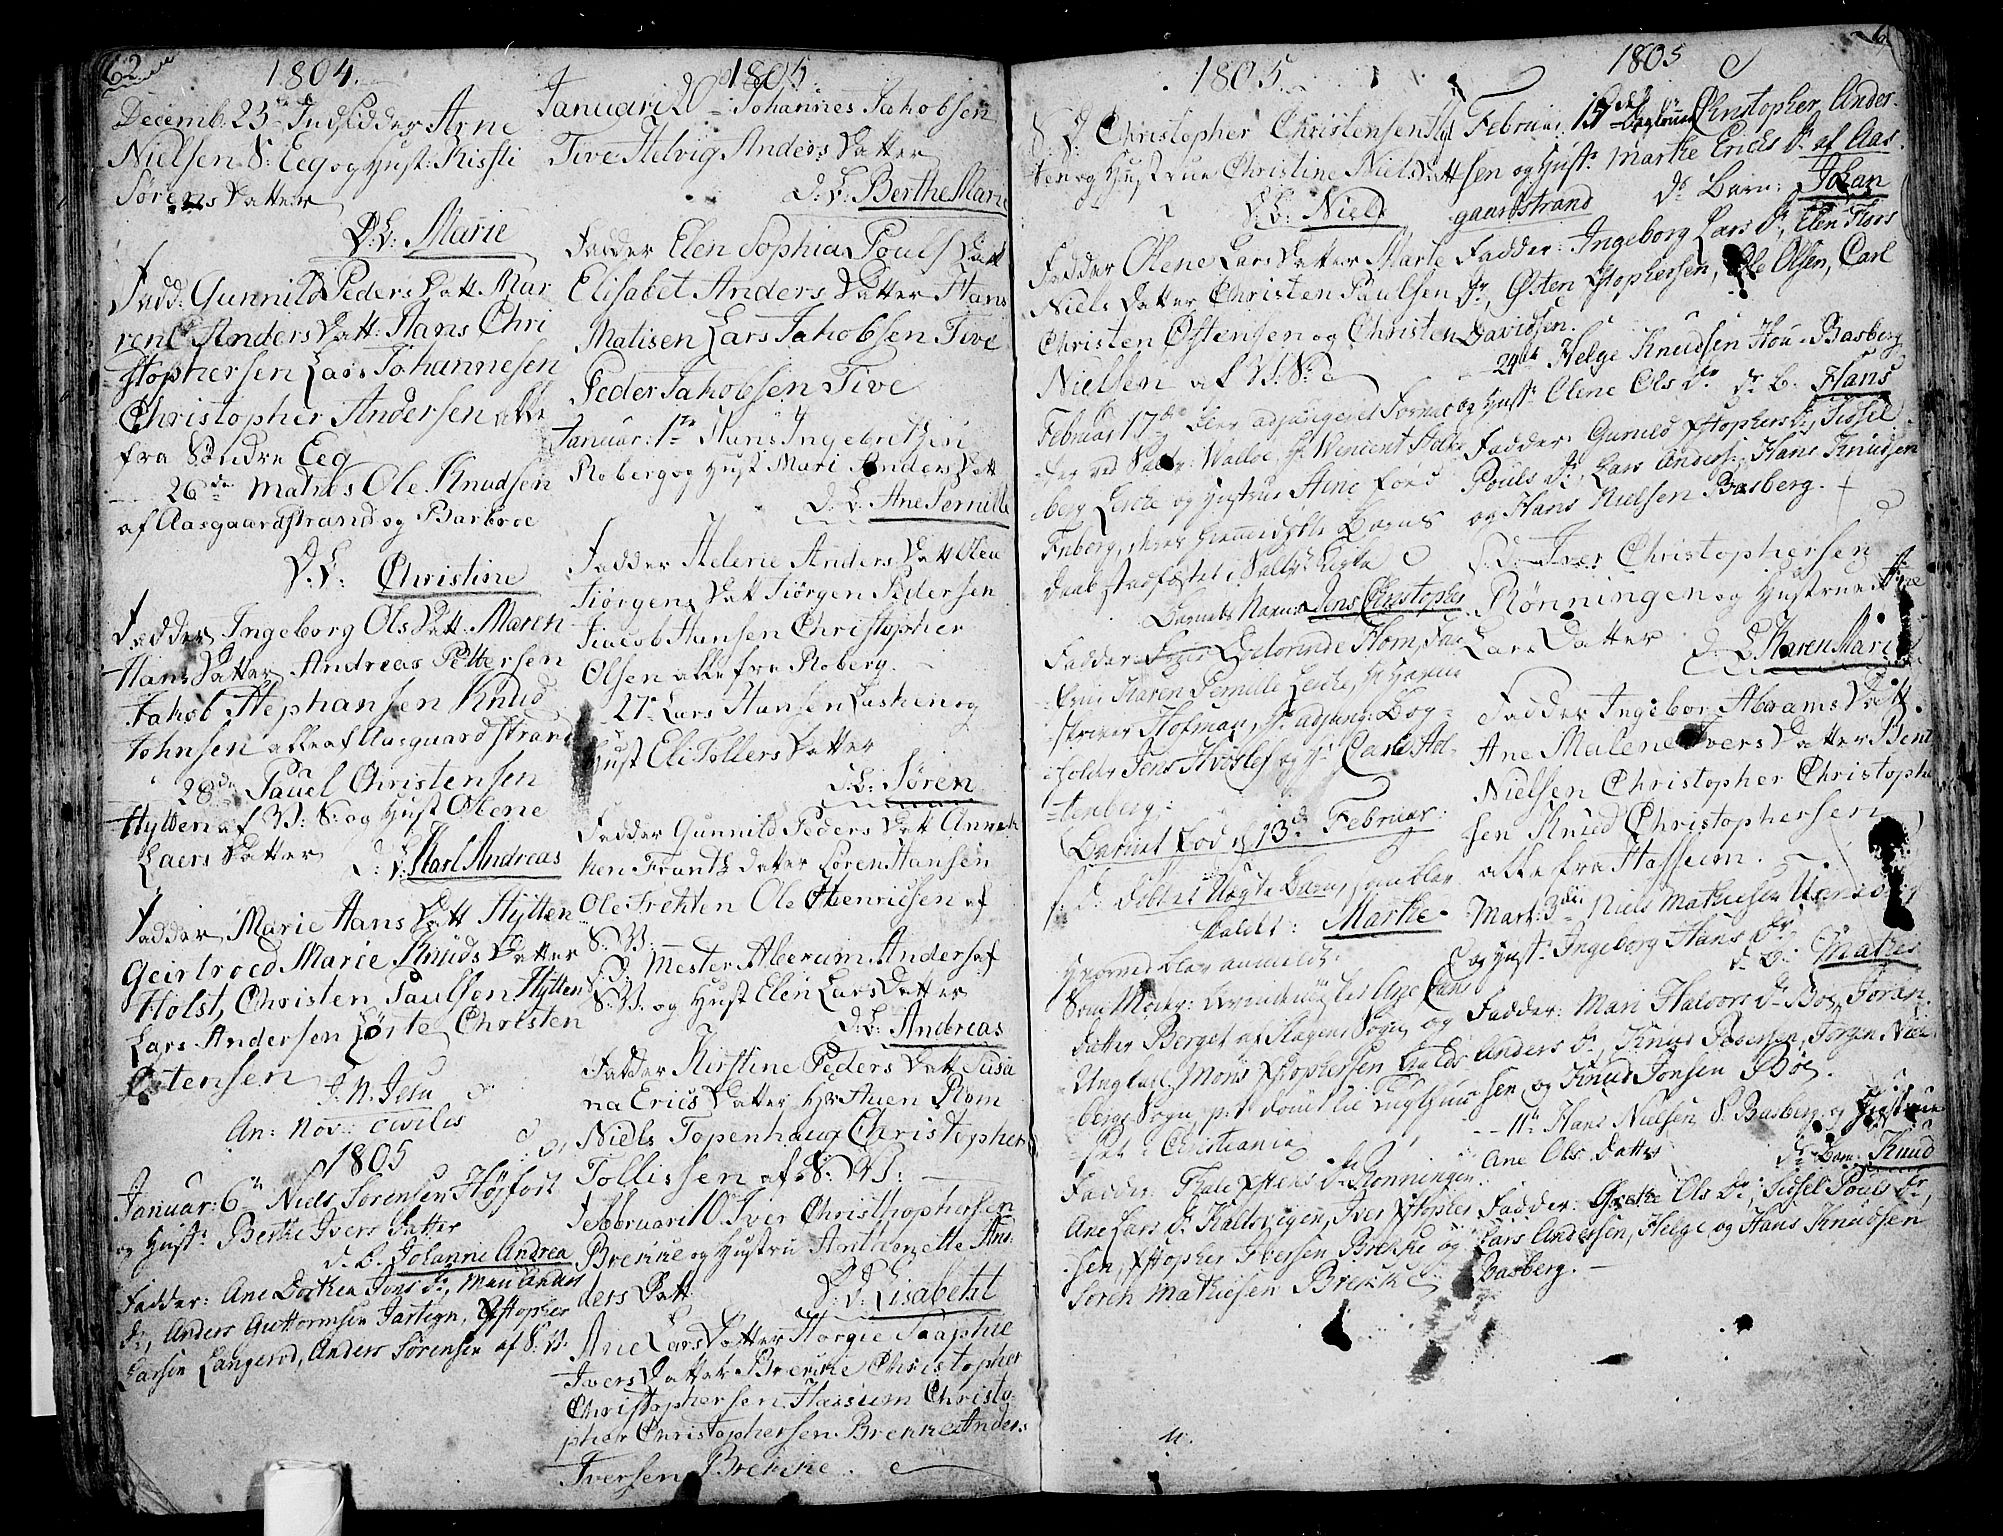 62
1804.
Decemb. 23de Indsidder Arne
Nielsen S: Eeg og Hust: Kisti
Sørens Datter
D: B: Marie
Fadd. Gunnild Peders Datt. Mar
rene Anders Datt: Hans Chri
stophersen Lars Johannesen
Christopher Andersen alle
fra Søndre Eeg
26de Mathis Ole Knudsen
af Aasgaardstrand og Barbroe
D: B: Christine
Fadder Ingeborg Ols Datt. Maren
Hans Datter Andreas Pettersen
Jakob Stephansen Knud
Johnsen alle af Aasgaardstrand
28de Pauel Christensen
Hytten af V: S: og Hust Olene
Laers Datter D: B: Karl Andreas
Fadder Marie Hans Datt Hytten
Geirtroed Marie Knuds Datter
Holst, Christen Paulsen Hytten
Lars Andersen Lørte Christen
Østensen
J. N. Jesu
An: Nov: civilis
1805
Januar: 6te Niels Sørensen Høyfort
og Hust: Berthe Ivers Datter
d. B. Johanne Andrea
Fadder: Ane Dorthea Jons Dr, Mari Anders
Dr, Anders Guttormsen Jartegn, Xstopher
Larsen Langerød, Anders Sørensen af S: V.
1805
Januari 20 Johannes Jakobsen
Tive Helvig Anders Datter
D: B: Berthe Marie
Fadder Elen Sophia Pouls Datt
Elisabet Anders Datter Hans
Matisen Lars Jakobsen Tive
Peder Jakobsen Tive
Januar: 1te Hans Ingebretzen
Roberg og Hust Mari Anders Datt
D: B: Ane Pernille
Fadder Helene Anders Datt Olea
Jiørgens Datt Jiørgen Pedersen
Jiacob Hansen Christopher
Olsen alle fra Roberg.
27e Lars Hansen Lasken og
Hust Eli Tollers Datter
D: B: Søren
Fadder Gunnild Peders Datt Annek
ken Frantz Datter Søren Hansen
Ole Trekten Ole Henriesen af
S: V:
S. D. Mester Aberum Anders af
S: V: og Hust Elen Lars Datter
D: B: Andreas
Fadder Kirstine Peders Datt Susa
na Erics Datter Hr Huen Plom
Niels Topenhaug Christopher
Tollissen af S: V:
Februari 10 Iver Christhophersen
Brekke og Hustru Antionette An
ders Datt D: B: Lisabeht
Ane Lars Datter Horgie Saaphie
Ivers Datter Brekke Christopher
Christophersen Hassum Christo
pher Christophersen Brekke Anders
Iversen Brekke.
1805.
S. D. Christopher Christensen Hyt
ten og Hustrue Christine Niels Datt
D: B: Niels
Fadder Olene Lars Datter Marte
Niels Datter Christen Paulsen
Christen Østensen og Christen
Nielsen af V: S:
Februar 17de blev adjungeret Foermø
der ved Saltv: Walløe, Hr Wincent Stolt
berg Lerche og Hustrue Ane fød
Friborg, deres hiemmedøbte Barns
Daab stadfæstet i Saltv: Kirke
Barnets Navn Jens Christopher
Fadder: Lovise Plom,
Karen Pernille Lerche, Hr
skriver Hofman, Hr adjung: Bog
holder Jens Kvisler og Hr Carl Stol
tenberg:
Barnet fød d 13de Februar:
S. D. Døbtes Uægte Barn, som blev
kaldet: Marthe.
Hvorved blev anmeldt:
Som Moder: Fruentimmer Inge Hans
Datter Berget af Slagens Sogn og
Ungkarl Mons Xstophersen Hals
bergs Sogn, p: t: dømt til Tugthuus
Straf i Christiania
Fadder: Thale Xstens Dr Rønningen
Ane Lars Dr Kaltvigen, Iver Xstopher
sen, Xstopher Iversen Brekke og
Søren Mathiesen Brekke
1805
Februar 15de Christopher Ander
sen og Hust: Marthe Erics Dr af Aas
gaardstrand Dr Barn: Johan
Fadder: Ingeborg Lars Dr, Elen Hans
Dr, Østen Xstophersen, Ole Olsen, Carl
Davidsen.
24de Helge Knudsen Hou-Basberg
og Hust: Olene Ols Dr Dr B. Hans
Fadder: Gunild Xstophers Dr, Sidsel
Pouls Dr, Lars Anders: Hans Knudsen
og Hans Nielsen Basberg.
S. D. Iver Christophersen
Rønningen og Hustrue Ane
Lars Datter D: B: Karen Marie
Fadder Ingebor Abrams Datt
Ane Malene Ivers Datter Bent
Nielsen Christopher Christopher
sen Knud Christophersen
alle fra Hasseum.
Mart: 3die Niels Mathiesen
og Hust: Ingeborg Hans Dr
d: B: Mathis
Fadder: Mari Halvors Dr Bøe, Joran
Anders Dr, Knud Pedersen, Jørgen Niel
sen, og Knud Jonsen Bøe.
11te Hans Nielsen S. Basberg og Hustrue
Ane Ols Datter Dr Barn: Knud
Fadder: Grethe Ols Dr, Sidsel Pouls Dr,
Lars Andersen, Helge og Hans Knudsen
Basberg.